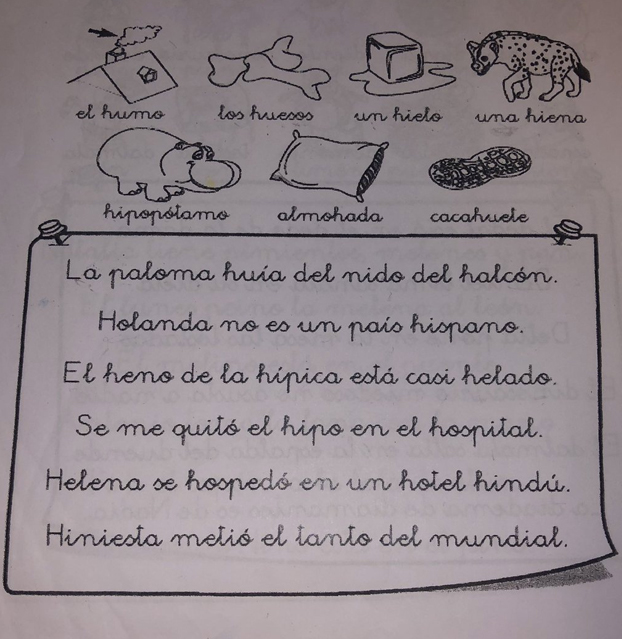 el humo los huesos un hielo una hiena
hipopótamo almohada cacahuete
La paloma huía del nido del halcón.
Holanda no es un país hispano.
El heno de la hípica está casi helado.
Se me quitó el hipo en el hospital.
Helena se hospedó en un hotel hindú.
Hiniesta metió el tanto del mundial.